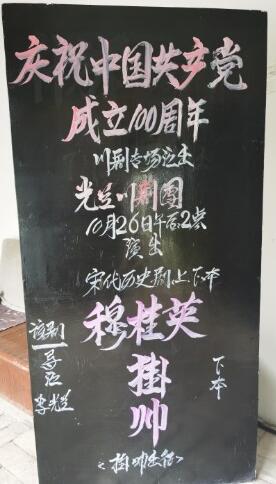 庆祝中国共产党
成立100周年
川剧专场演出
光兰川剧团
10月26日午后2点
演出
宋代历史剧上下本
穆桂英
挂帅
下本
该剧
导演
李光兰
<挂帅出征>